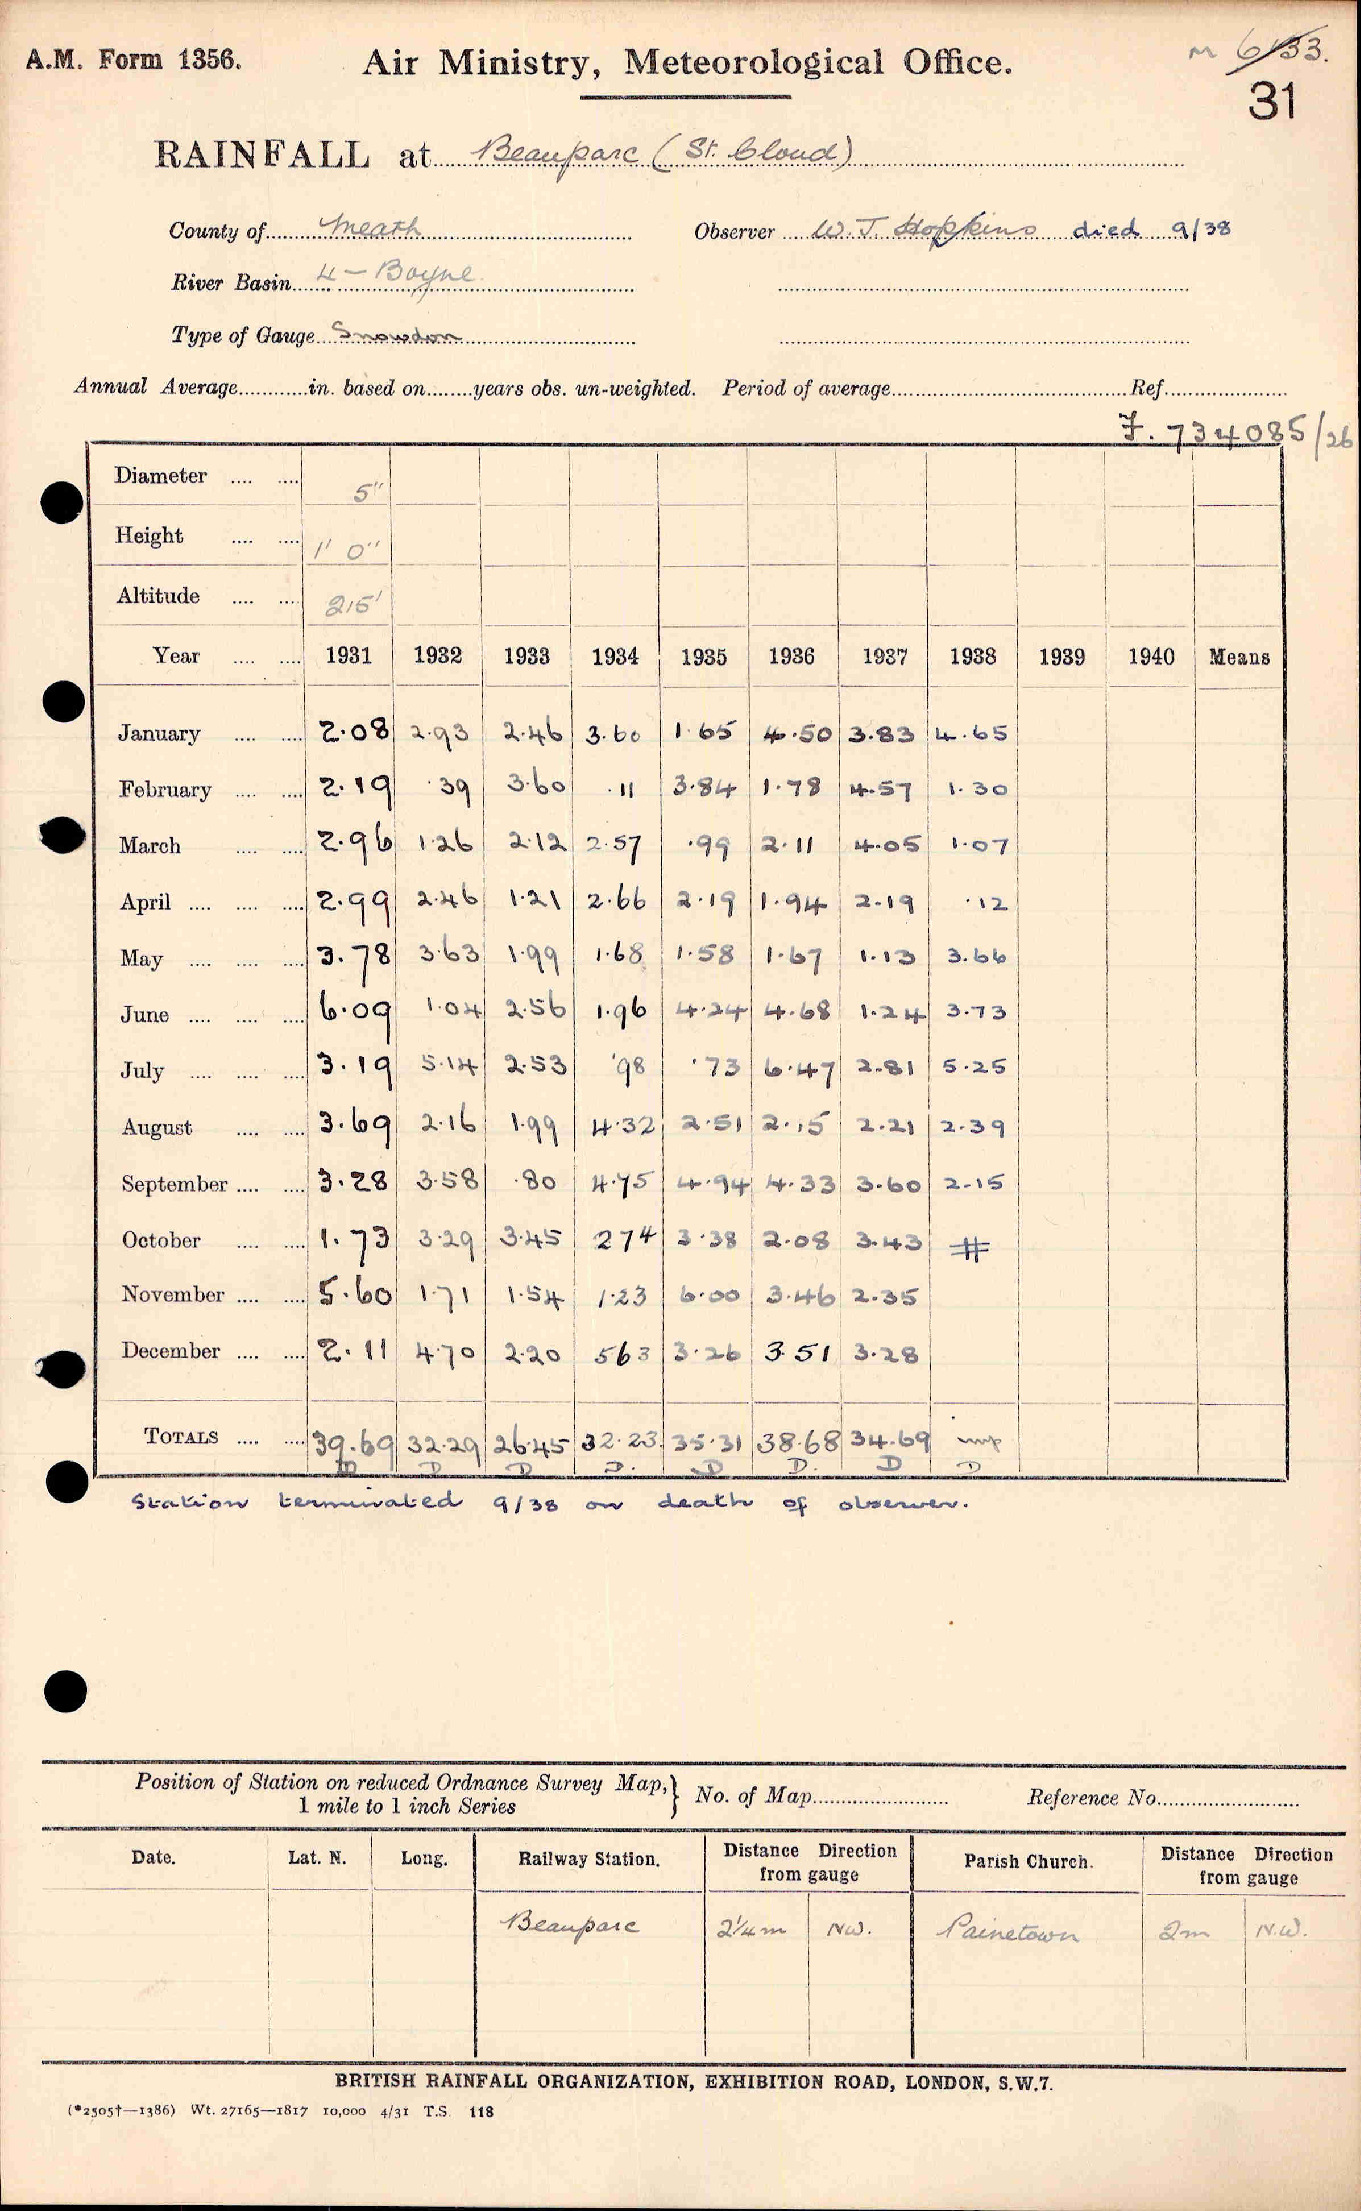 A.M. Form 1356.
Air Ministry, Meteorological Office.
M 6/33.
31
RAINFALL at Beauparc (St. Cloud)
County of Meath Observer W. J. Hopkins died 9/38
River Basin 4 - Boyne
Type of Gauge Snowdon
Annual Average............in. based on........years obs. un-weighted. Period of average............Ref............
F. 734085/26
Diameter .... .... 5"
Height .... .... 1' 0"
Altitude .... .... 215'
Year .... .... 1931 1932 1933 1934 1935 1936 1937 1938 1939 1940 Means
January .... .... 2.08 2.93 2.46 3.60 1.65 4.50 3.83 4.65
February .... .... 2.19 .39 3.60 .11 3.84 1.78 4.57 1.30
March .... .... 2.96 1.26 2.12 2.57 .99 2.11 4.05 1.07
April .... .... .... 2.99 2.46 1.21 2.66 2.19 1.94 2.19 .12
May .... .... .... 3.78 3.63 1.99 1.68 1.58 1.67 1.13 3.66
June .... .... .... 6.09 1.04 2.56 1.96 4.24 4.68 1.24 3.73
July .... .... .... 3.19 5.14 2.53 .98 .73 6.47 2.81 5.25
August .... .... 3.69 2.16 1.99 4.32 2.51 2.15 2.21 2.39
September .... .... 3.28 3.58 .80 4.75 4.94 4.33 3.60 2.15
October .... .... 1.73 3.29 3.45 2 74 3.38 2.08 3.43 #
November .... .... 5.60 1.71 1.54 1.23 6.00 3.46 2.35
December .... .... 2.11 4.70 2.20 5 63 3.26 3 51 3.28
TOTALS .... .... 39.69 32.29 26.45 32.23 35.31 38.68 34.69 imp
D D D D. D D. D D
Station terminated 9/38 on death of observer.
Position of Station on reduced Ordnance Survey Map, 1 mile to 1 inch Series } No. of Map............ Reference No............
Date. Lat. N. Long. Railway Station. Distance Direction from gauge Parish Church. Distance Direction from gauge
Beauparc 2¼m NW. Painetown 2m N.W.
BRITISH RAINFALL ORGANIZATION, EXHIBITION ROAD, LONDON, S.W.7.
(*2505†—1386) Wt. 27165—1817 10,000 4/31 T.S. 118